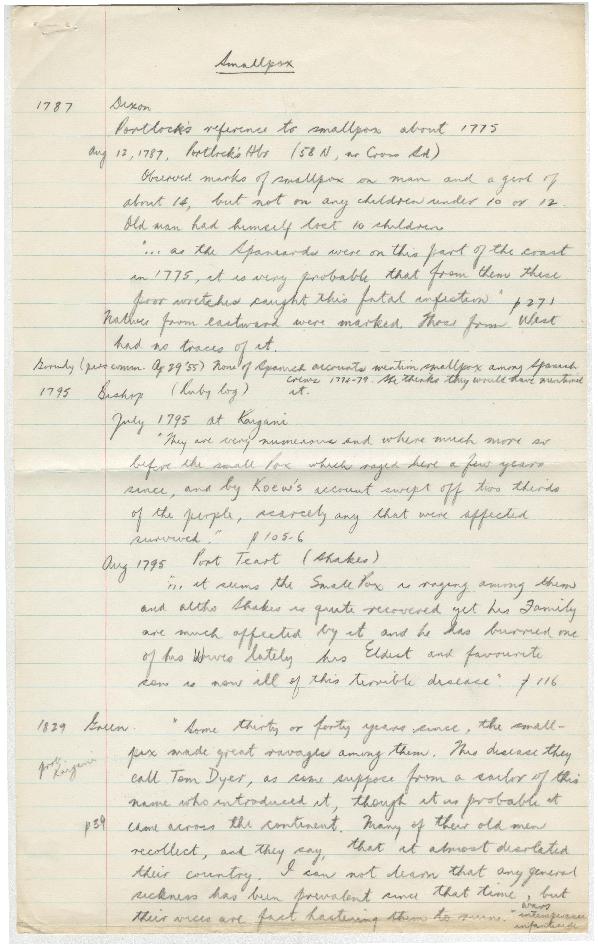 Smallpox
1787 Dixon
Portlock's reference to smallpox about 1775
Aug 12, 1787. Portlock's Hbr (58 N, nr Cross Sd)
Observed marks of smallpox on man and a girl of
about 14, but not on any children under 10 or 12.
Old man had himself lost 10 children
"... as the Spaniards were on this part of the coast
in 1775, it is very probable that from them these
poor wretches caught this fatal infection" p 271
Natives from eastward were marked. Those from West
had no traces of it.
(pers comm. Ag 29 '55) None of Spanish accounts mention smallpox among Spanish
crews 1774-79. He thinks they would have mentioned
1795 Bishop (Ruby log) it.
July 1795 at Kaigani
"They are very numerous and where much more so
before the small Pox which raged here a few years
since, and by Koew's account swept off two thirds
of the people, scarcely any that were affected
survived." p 105-6
Aug 1795 Port Teart (Shakes)
"... it seems the Small Pox is raging among them
and altho Shakes is quite recovered yet his Family
are much affected by it and he has burried one
of his Wives lately his Eldest and favourite
son is now ill of this terrible disease". p 116
1829 Green. "Some thirty or forty years since, the small-
pox made great ravages among them. This disease they
prob. Kaigani
call Tom Dyer, as some suppose from a sailor of this
name who introduced it, though it is probable it
p 39 came across the continent. Many of their old men
recollect, and they say, that it almost desolated
their country. I can not learn that any general
sickness has been prevalent since that time, but
their vices are fast hastening them to ruin."
wars
intemperance
infanticide